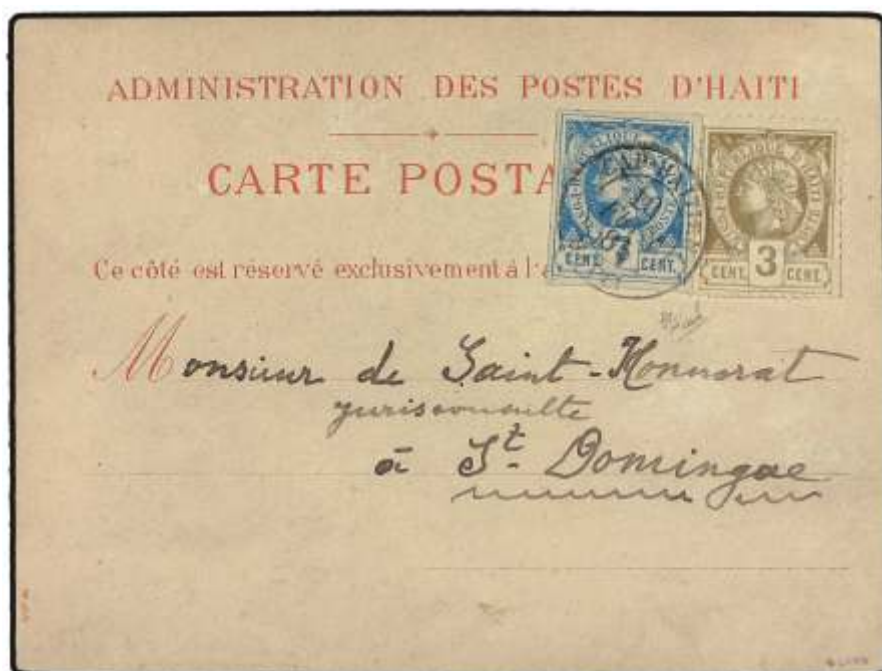 ADMINISTRATION DES POSTES D'HAITI
CARTE POSTA
Ce côté est réservé exclusivement à l'a
CENT. CENT.
CENT. 3 CENT.
Monsieur de Saint-Honnorat
jurisconsulte
à St. Domingue